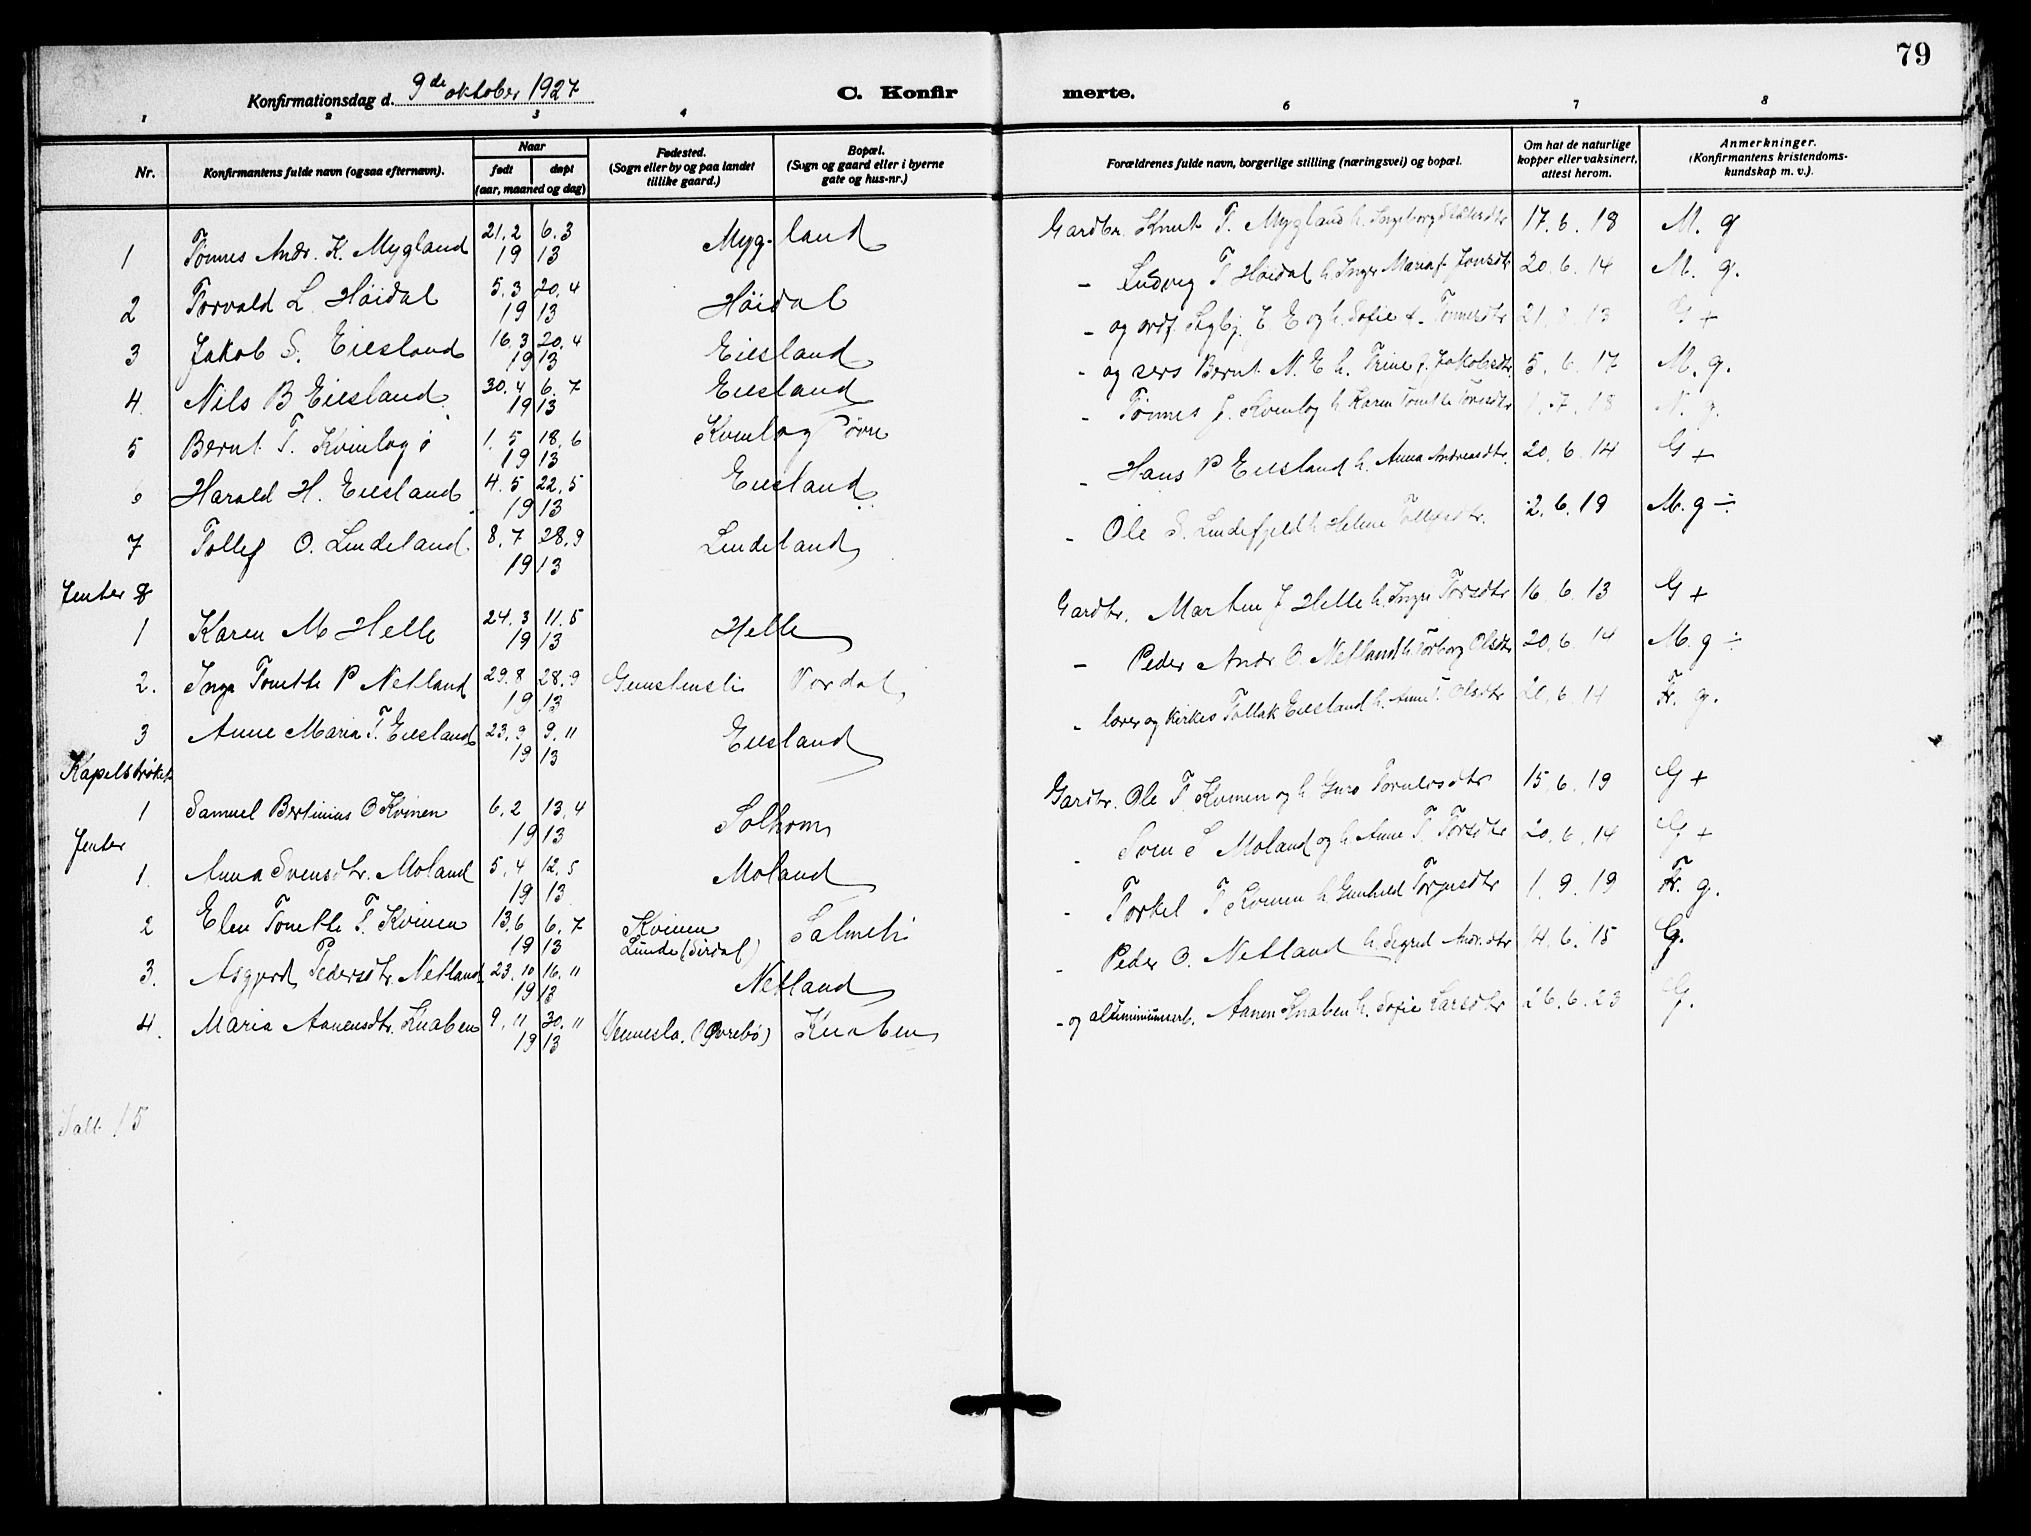 79
Konfirmationsdag d. 9de oktober 1927
C. Konfirmerte.
1 2 3 4 6 7 8
Nr. Konfirmantens fulde navn (ogsaa efternavn). Naar født døpt (aar, maaned og dag) Fødested. (Sogn eller by og paa landet tillike gaard.) Bopæl. (Sogn og gaard eller i byerne gate og hus-nr.) Forældrenes fulde navn, borgerlige stilling (næringsvei) og bopæl. Om hat de naturlige kopper eller vaksinert, attest herom. Anmerkninger. (Konfirmantens kristendoms-kundskap m. v.).
1 Tønnes Andr. K. Mygland 21.2 6.3 1913 Mygland Gardbr. Knut T. Mygland h. Ingeborg 17.6.18 M. g
2 Torvald L. Høidal 5.3 20.4 1913 Høidal - Ludvig T Høidal h. Inger Maria f. Jonsdtr 20.6.14 M. g.
3 Jakob S. Eiesland 16.3 20.4 1913 Eiesland - og ordf. Sigbj. E og h. Sofie f. Tønnesdtr 21. 13 G +
4. Nils B Eiesland 30.4 6.7 1913 Eiesland - og sers Bernt N. E h. Trine J. Jakobsdtr. 5.6.17 M. g.
5 Bernt T. Kvinlog ø 1.5 18.6 1913 Kvinlog øvre - Tønnes J. Kvinlog h Karen Tonette Toresdtr 1.7.18 N. g.
6 Harald H. Eiesland 4.5 22.5 1913 Eiesland - Hans P Eiesland h. Anna Andreasdtr. 20.6.14 G +
7 Tollef O. Lindeland 8.7 28.9 1913 Lindeland - Ole S. Lindefjeld h Helene Tollefsdtr. 2.6.19 M. g ÷
Jenter
1 Karen M Helle 24.3 11.5 1913 Helle Gardbr. Marten J Helle h. Inger Torsdtr 16.6.13 G +
2. Inga Tonette P Netland 29.8 28.9 1913 Vordal - Peder Andr. O. Netland h. Torborg Olsdtr 20.6.14 M. g ÷
3 Anne Maria T. Eiesland 23.9 9.11 1913 Eiesland - lærer og kirkes Tollak Eiesland h. Anne T. Olsdtr 20.6.14 Fr. g.
Kapelstrøket
1 Samuel Bertinius O Kvinen 6.2 13.4 1913 Solhom Gardbr. Ole T Kvinen og h Guro 15.6.19 G +
Jenter
1. Anna Svensdtr. Moland 5.4 12.5 1913 Moland - Sven S Moland og h Anne T. Torsdtr 20.6.14 G +
2 Elen Tonette T. Kvinen 13.6 6.7 1913 Kvinen Lunde (Sirdal) Salmeli - Torkel T Kvinen h Gunhild 1.9.19 Fr. g.
3. Asgjerd Pedersdtr. Netland 23.10 16.11 1913 Netland - Peder O. Netland h. Sigrid Andr.dtr 4.6.15 G.
4. Maria Aanensdtr. Knaben 9.11 30.11 1913 Vennesla. (Øvrebø) Knaben - og aluminiumsarb. Aanen Knaben h. Sofie Larsdtr 26.6.23 G.
Ialt 15